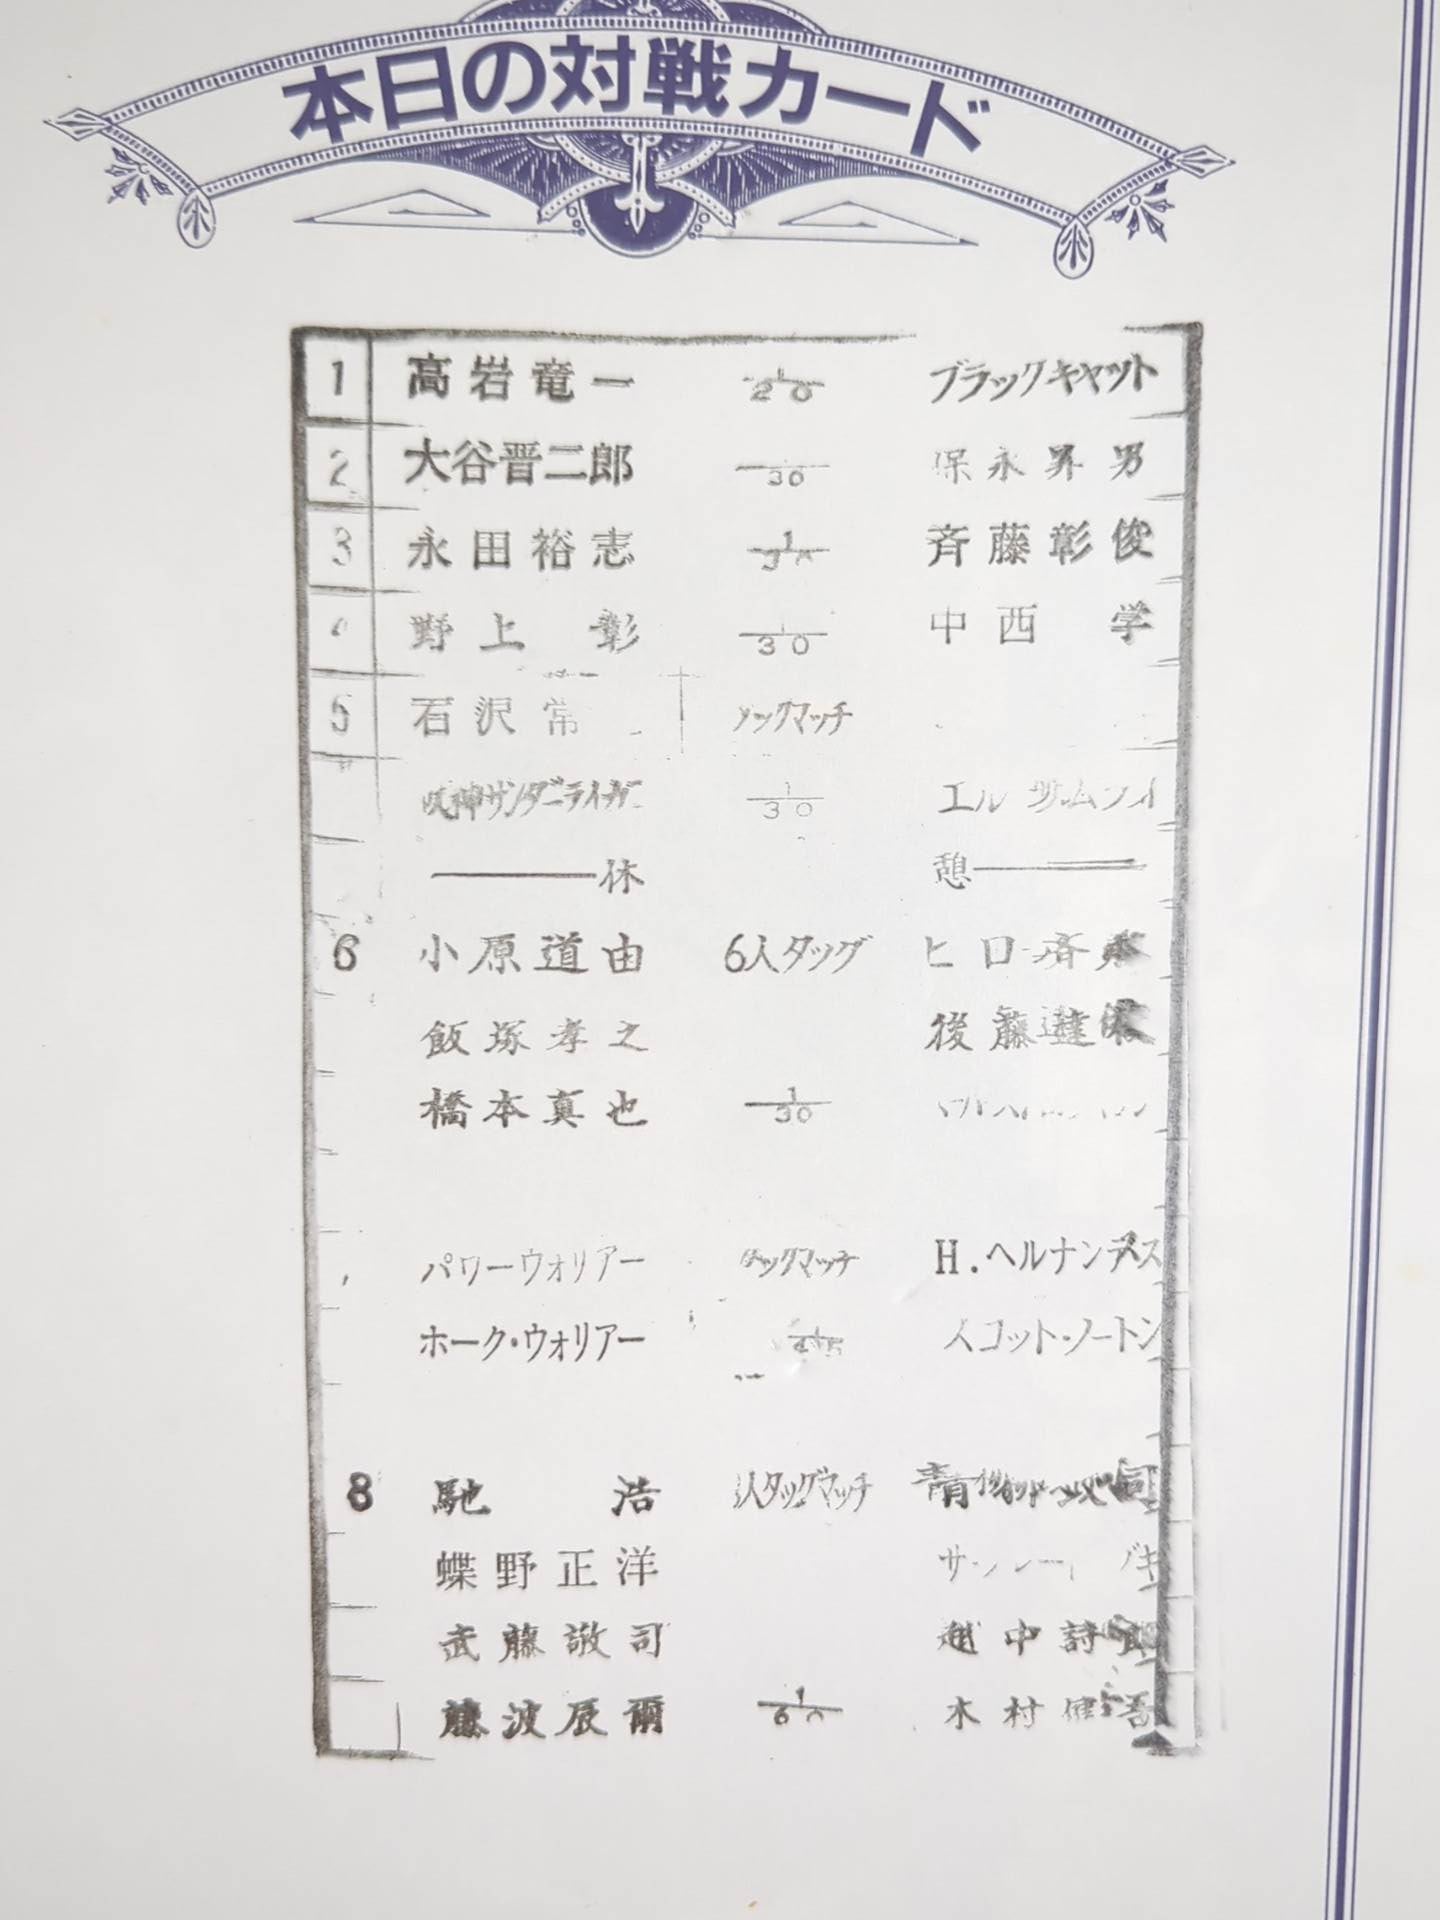 本日の対戦カード
1 高岩竜一 1/20 ブラックキャット
2 大谷晋二郎 1/30 保永昇男
3 永田裕志 1 斉藤彰俊
野上彰 1/30 中西学
5 石沢常 タッグマッチ
獣神サンダーライガー 1/30 エル サムライ
休 憩
6 小原道由 6人タッグ ヒロ斉藤
飯塚孝之 後藤達俊
橋本真也 1/30
パワーウォリアー タッグマッチ H.ヘルナンデス
ホーク・ウォリアー 1/45 スコット・ノートン
8 馳浩 人タッグマッチ 青
蝶野正洋
武藤敬司 越中詩郎
藤波辰爾 1/60 木村健吾